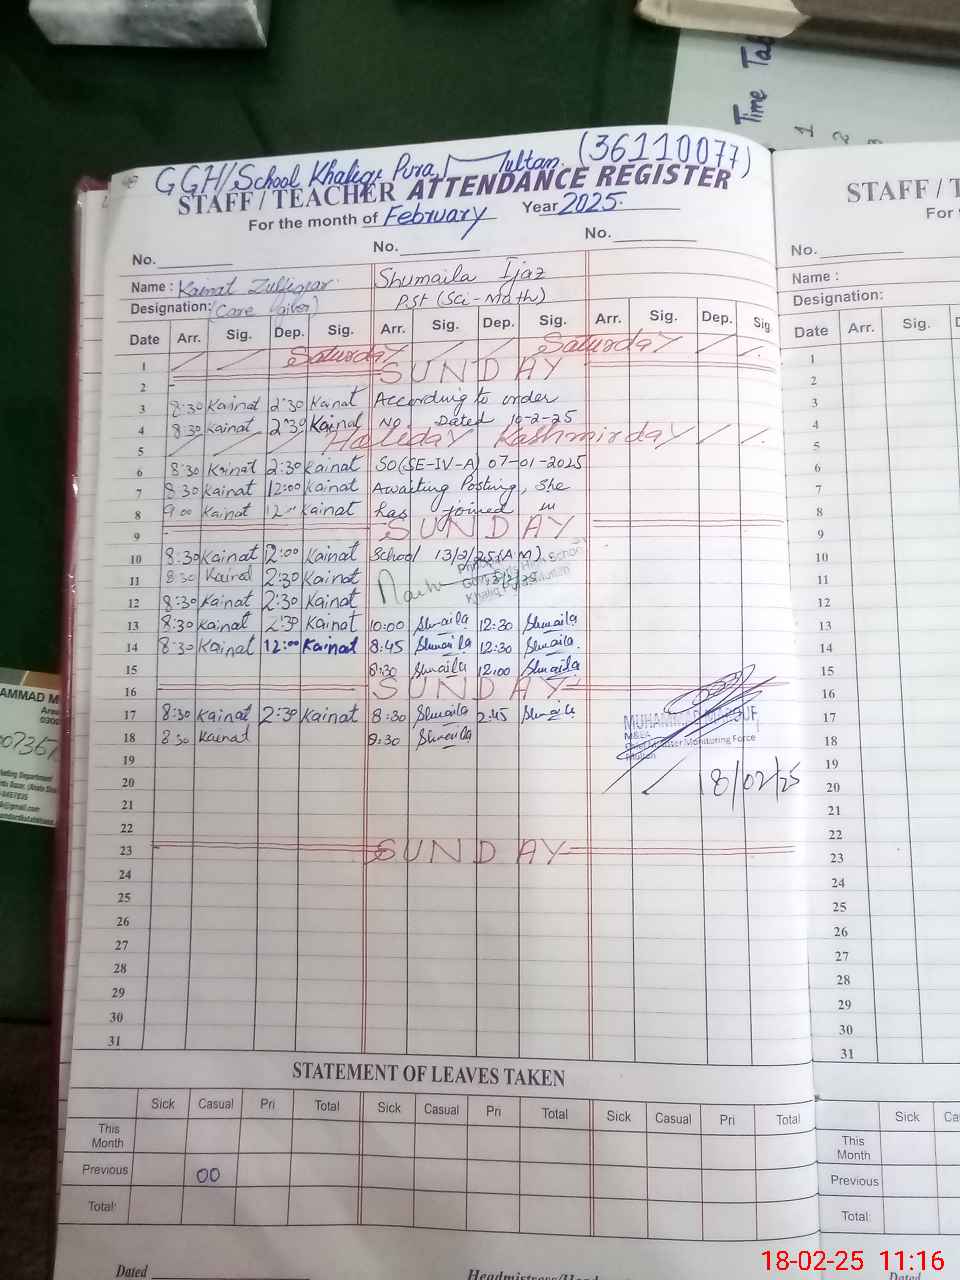 Time Tab
1
2
3
GGH/School Khaliqe Pura, Multan. (36110077)
STAFF / TEACHER ATTENDANCE REGISTER
For the month of February Year 2025.
No. No. No.
Name : Kainat Zulfiqar. Shumaila Ijaz
Designation: (Care Gaiver) P.St (Sci-Math)
Date Arr. Sig. Dep. Sig. Arr. Sig. Dep. Sig. Arr. Sig. Dep. Sig.
1 Saturday Saturday
2 SUNDAY
3 8:30 Kainat 2:30 Kainat According to order
4 8:30 Kainat 2:30 Kainat No. Dated 10-2-25
5 Holiday Kashmir day
6 8:30 Kainat 2:30 Kainat SO(SE-IV-A) 07-01-2025
7 8:30 Kainat 12:00 Kainat Awaiting Posting, She
8 9:00 Kainat 12:00 Kainat has joined in
9 SUNDAY
10 8:30 Kainat 2:00 Kainat School 13/2/25 (A.M).
11 8:30 Kainat 2:30 Kainat
Principal
Govt. Girls High School
Khaliq Pura Multan
12 8:30 Kainat 2:30 Kainat
13 8:30 Kainat 2:30 Kainat 10:00 Shumaila 12:30 Shumaila
14 8:30 Kainat 12:00 Kainat 8:45 Shumaila 12:30 Shumaila
15 8:30 Shumaila 12:00 Shumaila
16 SUNDAY
17 8:30 Kainat 2:30 Kainat 8:30 Shumaila 2:45 Shumaila
18 8:30 Kainat 8:30 Shumaila
MUHAMMAD MAROUF
M&EA
Chief Minister Monitoring Force
Multan
18/02/25
19
20
21
22
23 SUNDAY
24
25
26
27
28
29
30
31
STATEMENT OF LEAVES TAKEN
Sick Casual Pri Total Sick Casual Pri Total Sick Casual Pri Total
This Month
Previous 00
Total:
Dated
Headmistress/Head
STAFF / T
For t
No.
Name :
Designation:
Date Arr. Sig. D
1
2
3
4
5
6
7
8
9
10
11
12
13
14
15
16
17
18
19
20
21
22
23
24
25
26
27
28
29
30
31
Sick Ca
This Month
Previous
Total:
Dated
AMMAD M
Area
0300
00736
keting Department
18-02-25 11:16